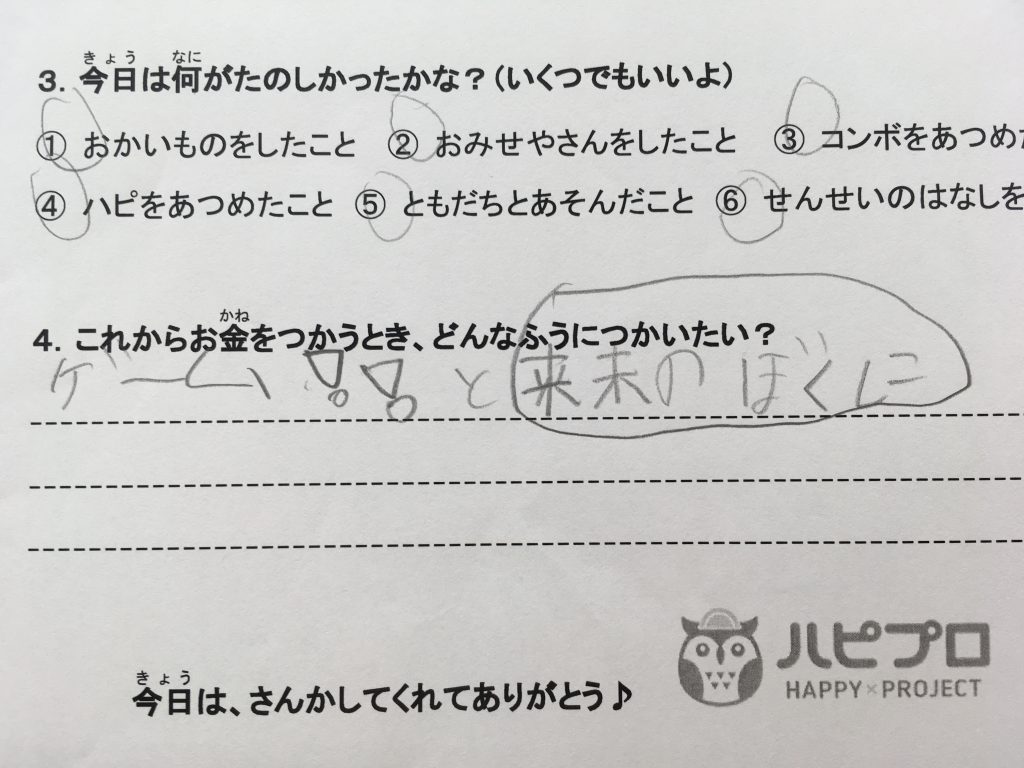 3. 今日は何がたのしかったかな？（いくつでもいいよ）
きょう なに
① おかいものをしたこと ② おみせやさんをしたこと ③ コンボをあつめた
④ ハピをあつめたこと ⑤ ともだちとあそんだこと ⑥ せんせいのはなしを
4. これからお金をつかうとき、どんなふうにつかいたい？
かね
ゲーム!!と来未のぼくに
今日は、さんかしてくれてありがとう♪
きょう
ハピプロ
HAPPY×PROJECT